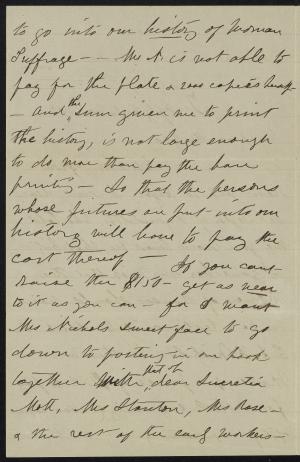 to go into our history of Woman
Suffrage — Mrs N. is not able to
pay for the plate & 2000 copies
— and the sum given me to print
the history, is not large enough
to do more than pay the bare
printing — So that the persons
whose pictures are put into our
history will have to pay the
cost thereof — If you can't
raise the $150 - get as near
to it as you can — for I want
Mrs Nichols sweet face to go
down to posterity in our book
together with that of dear Lucretia
Mott, Mrs Stanton, Mrs Rose -
& the rest of the early workers -